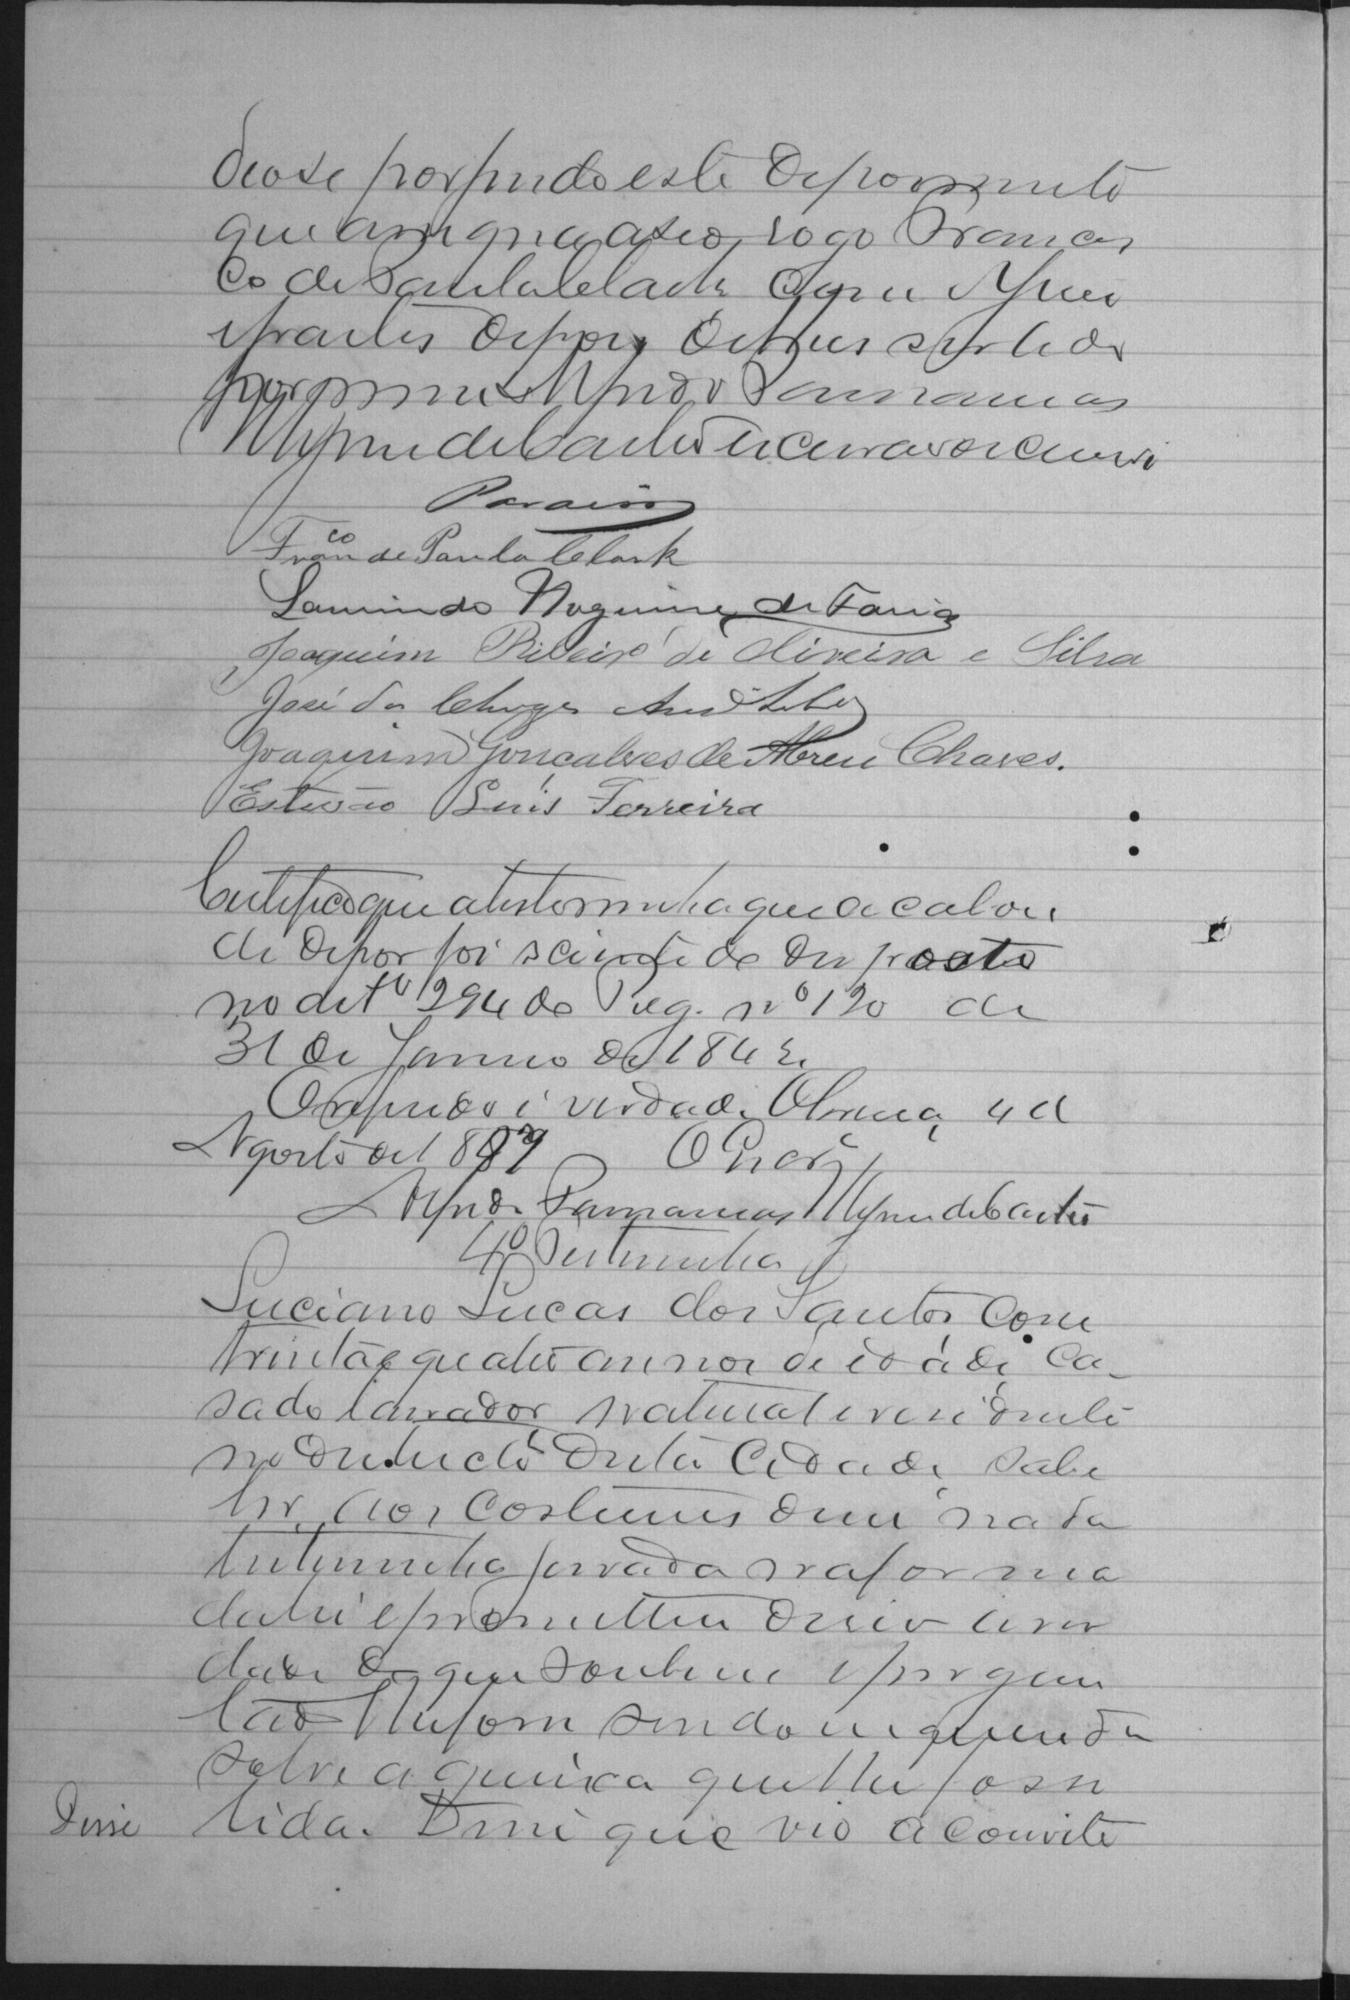 deose por findo este depoimento
que assigna a seo rogo Francis
co de Paula Clark com o Juiz
e partes depois de lhes ser lido
por mim
Escrivão escrevi
Paraiso
Franco de Paula Clark
Laurindo Nogueira de Faria
Joaquim Ribeiro de Oliveira e Silva
José das Chagas Andr
Joaquim Gonçalves de Abreu Chaves.
Estevão Luis Ferreira
Certifico que a testemunha que acabou
de depor foi sciente do disposto
no artº 294 do Reg. nº 120 de
31 de Janeiro de 1842.
O referido é verdade. 4 de
Agosto de 1889 O Escrº
4ª Testemunha
Luciano Lucas dos Santos com
trinta e quatro annos de idade, ca-
sado lavrador natural e residente
no districto desta Cidade, sabe
ler, aos costumes disse nada
testemunha jurada na forma
da lei e prometteu dizer a ver
dade do que soubesse e pergun
tado lhe fosse sendo inquirida
sobre a queixa que lhe foi
Disse lida. Disse que vio a convite